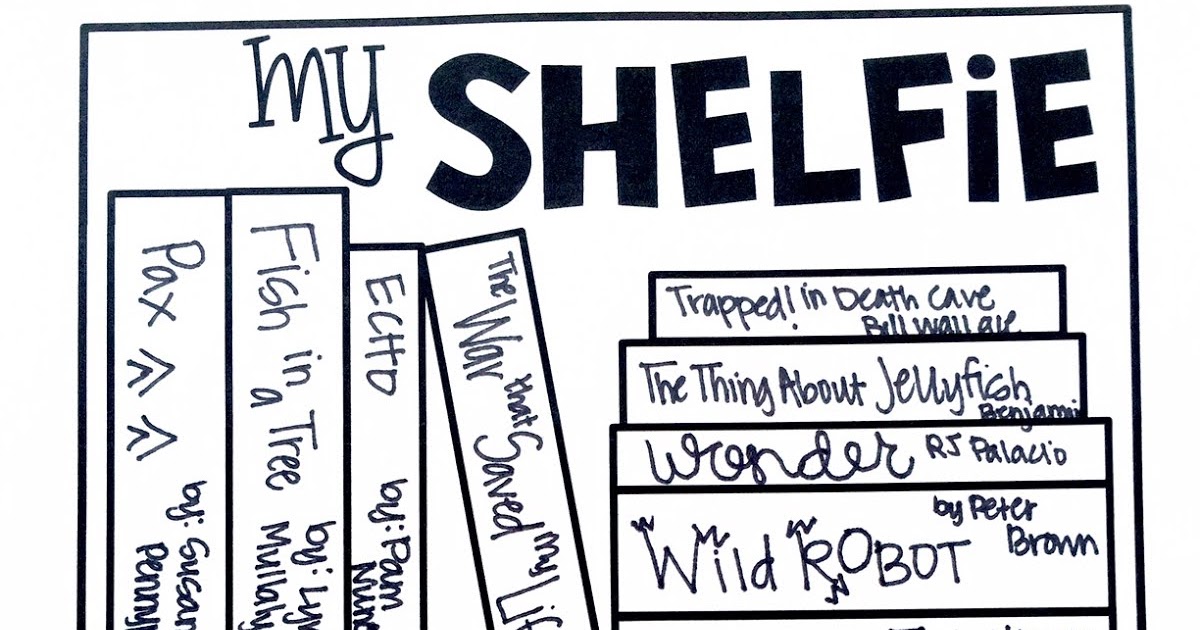 my SHELFiE
Pax
by: Susan
Fish in a Tree
by: Lyn
Mullaly
ECHO
by: Pam
The War that Saved my
Trapped! in Death Cave
Bill Wallace
The Thing About Jellyfish
Benjamin
Wonder RJ Palacio
Wild ROBOT by Peter
Brown